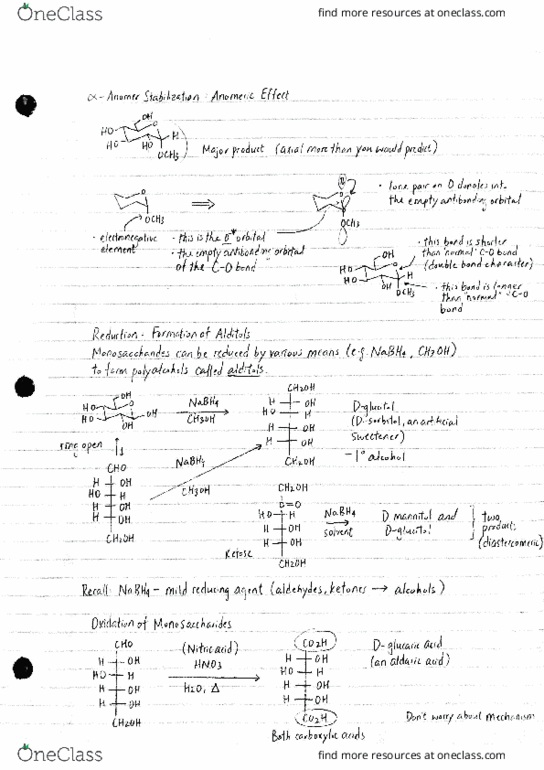 OneClass
find more resources at oneclass.com
α-Anomer Stabilization: Anomeric Effect
OH
HO
O
HO
HO
H
OCH3
Major product (axial more than you would predict)
O
OCH3
⇒
O
OCH3
• lone pair on O donates into
the empty antibonding orbital
• electronegative
element
• this is the σ* orbital
• the empty antibonding orbital
of the C-O bond
OH
HO
HO
O
H
OH
OCH3
• this bond is shorter
than "normal" C-O bond
(double bond character)
• this bond is longer
than "normal" C-O
bond
Reduction - Formation of Alditols
Monosaccharides can be reduced by various means (e.g. NaBH4, CH3OH)
to form polyalcohols called alditols.
OH
HO
HO
O
OH
OH
NaBH4
CH3OH
CH2OH
H OH
HO H
H OH
H OH
CH2OH
D-glucitol
(D-sorbitol, an artificial
sweetener)
- 1° alcohol
ring open
CHO
H OH
HO H
H OH
H OH
CH2OH
NaBH4
CH3OH
CH2OH
O
HO H
H OH
H OH
CH2OH
Ketose
NaBH4
solvent
D mannitol and
D-glucitol
two
products
(diastereomeric)
Recall: NaBH4 - mild reducing agent (aldehydes, ketones → alcohols)
Oxidation of Monosaccharides
CHO
H OH
HO H
H OH
H OH
CH2OH
(Nitric acid)
HNO3
H2O, Δ
CO2H
H OH
HO H
H OH
H OH
CO2H
D-glucaric acid
(an aldaric acid)
Both carboxylic acids
Don't worry about mechanism
OneClass
find more resources at oneclass.com